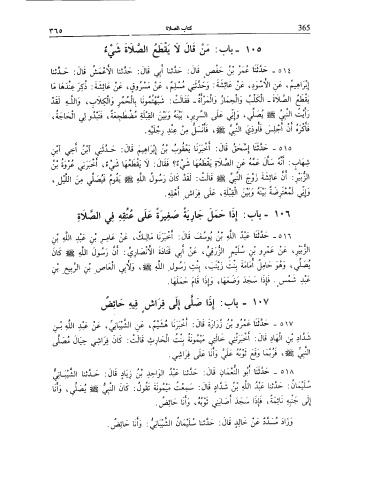 365 كتاب الصلاة ٣٦٥
١٠٥ - باب: مَن قَالَ لَا يَقْطَعُ الصَّلَاةَ شَيْءٌ
٥١٤ - حَدَّثَنَا عُمَرُ بْنُ حَفْصٍ قَالَ: حَدَّثَنَا أَبِي قَالَ: حَدَّثَنَا الْأَعْمَشُ قَالَ: حَدَّثَنَا
إِبْرَاهِيمُ، عَنِ الْأَسْوَدِ، عَنْ عَائِشَةَ: وَحَدَّثَنِي مُسْلِمٌ، عَنْ مَسْرُوقٍ، عَنْ عَائِشَةَ: ذُكِرَ عِنْدَهَا مَا
يَقْطَعُ الصَّلَاةَ - الْكَلْبُ وَالْحِمَارُ وَالْمَرْأَةُ - فَقَالَتْ: شَبَّهْتُمُونَا بِالْحُمُرِ وَالْكِلَابِ، وَاللَّهِ لَقَدْ
رَأَيْتُ النَّبِيَّ ﷺ يُصَلِّي، وَإِنِّي عَلَى السَّرِيرِ، بَيْنَهُ وَبَيْنَ الْقِبْلَةِ مُضْطَجِعَةً، فَتَبْدُو لِيَ الْحَاجَةُ،
فَأَكْرَهُ أَنْ أَجْلِسَ فَأُوذِيَ النَّبِيَّ ﷺ، فَأَنْسَلُّ مِنْ عِنْدِ رِجْلَيْهِ.
٥١٥ - حَدَّثَنَا إِسْحَقُ قَالَ: أَخْبَرَنَا يَعْقُوبُ بْنُ إِبْرَاهِيمَ قَالَ: حَدَّثَنِي ابْنُ أَخِي ابْنِ
شِهَابٍ: أَنَّهُ سَأَلَ عَمَّهُ عَنِ الصَّلَاةِ يَقْطَعُهَا شَيْءٌ؟ فَقَالَ: لَا يَقْطَعُهَا شَيْءٌ، أَخْبَرَنِي عُرْوَةُ بْنُ
الزُّبَيْرِ: أَنَّ عَائِشَةَ زَوْجَ النَّبِيِّ ﷺ قَالَتْ: لَقَدْ كَانَ رَسُولُ اللَّهِ ﷺ يَقُومُ فَيُصَلِّي مِنَ اللَّيْلِ،
وَإِنِّي لَمُعْتَرِضَةٌ بَيْنَهُ وَبَيْنَ الْقِبْلَةِ، عَلَى فِرَاشِ أَهْلِهِ.
١٠٦ - باب: إِذَا حَمَلَ جَارِيَةً صَغِيرَةً عَلَى عُنُقِهِ فِي الصَّلَاةِ
٥١٦ - حَدَّثَنَا عَبْدُ اللَّهِ بْنُ يُوسُفَ قَالَ: أَخْبَرَنَا مَالِكٌ، عَنْ عَامِرِ بْنِ عَبْدِ اللَّهِ بْنِ
الزُّبَيْرِ، عَنْ عَمْرِو بْنِ سُلَيْمٍ الزُّرَقِيِّ، عَنْ أَبِي قَتَادَةَ الْأَنْصَارِيِّ: أَنَّ رَسُولَ اللَّهِ ﷺ كَانَ
يُصَلِّي، وَهُوَ حَامِلٌ أُمَامَةَ بِنْتَ زَيْنَبَ، بِنْتِ رَسُولِ اللَّهِ ﷺ، وَلِأَبِي الْعَاصِ بْنِ الرَّبِيعِ بْنِ
عَبْدِ شَمْسٍ. فَإِذَا سَجَدَ وَضَعَهَا، وَإِذَا قَامَ حَمَلَهَا.
١٠٧ - باب: إِذَا صَلَّى إِلَى فِرَاشٍ فِيهِ حَائِضٌ
٥١٧ - حَدَّثَنَا عَمْرُو بْنُ زُرَارَةَ قَالَ: أَخْبَرَنَا هُشَيْمٌ، عَنِ الشَّيْبَانِيِّ، عَنْ عَبْدِ اللَّهِ بْنِ
شَدَّادِ بْنِ الْهَادِ قَالَ: أَخْبَرَتْنِي خَالَتِي مَيْمُونَةُ بِنْتُ الْحَارِثِ قَالَتْ: كَانَ فِرَاشِي حِيَالَ مُصَلَّى
النَّبِيِّ ﷺ، فَرُبَّمَا وَقَعَ ثَوْبُهُ عَلَيَّ وَأَنَا عَلَى فِرَاشِي.
٥١٨ - حَدَّثَنَا أَبُو النُّعْمَانِ قَالَ: حَدَّثَنَا عَبْدُ الْوَاحِدِ بْنُ زِيَادٍ قَالَ: حَدَّثَنَا الشَّيْبَانِيُّ
سُلَيْمَانُ: حَدَّثَنَا عَبْدُ اللَّهِ بْنُ شَدَّادٍ قَالَ: سَمِعْتُ مَيْمُونَةَ تَقُولُ: كَانَ النَّبِيُّ ﷺ يُصَلِّي، وَأَنَا
إِلَى جَنْبِهِ نَائِمَةٌ، فَإِذَا سَجَدَ أَصَابَنِي ثَوْبُهُ، وَأَنَا حَائِضٌ.
وَزَادَ مُسَدَّدٌ عَنْ خَالِدٍ قَالَ: حَدَّثَنَا سُلَيْمَانُ الشَّيْبَانِيُّ: وَأَنَا حَائِضٌ.